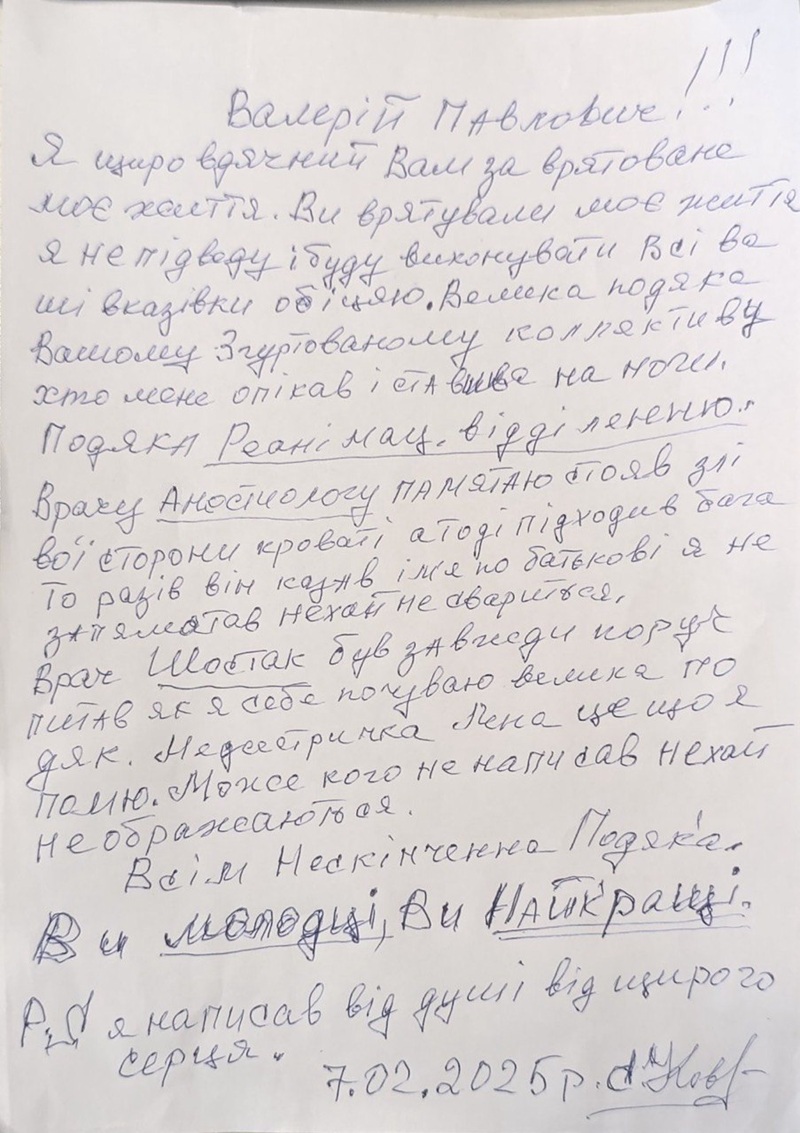 Валерій Павлович!!!
Я щиро вдячний Вам за врятоване
моє життя. Ви врятували моє життя
я не підведу і буду виконувати Всі ва
ші вказівки обіцяю. Велика подяка
Вашому Згуртованому коллективу
хто мене опікав і ставив на ноги.
Подяка Реанімац. відділенню.
Врачу Аностиологу памятаю стояв злі
вої сторони кроваті а тоді підходив бага
то разів він казав імя по батькові я не
запяматав нехай не свариться.
Врач Шостак був завжди поруч
питав як я себе почуваю велика по
дяк. Медсестричка Лена це що я
помю. Може кого не написав нехай
не ображаються.
Всім Нескінченна Подяка.
Ви молодці, Ви Найкращі.
P.S я написав від душі від щирого
серця.
7.02.2025р.